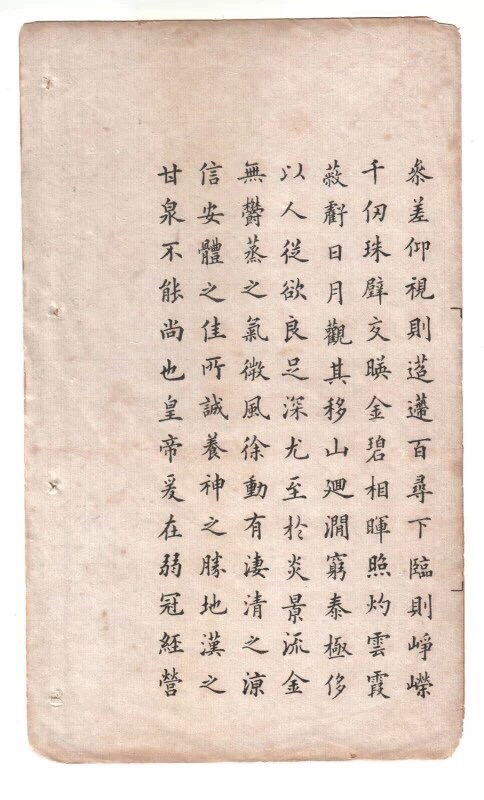 叅差仰視則迢遰百尋下臨則崢嶸
千仞珠壁交暎金碧相暉照灼雲霞
蔽虧日月觀其移山廻澗窮泰極侈
以人從欲良足深尤至於炎景流金
無欝蒸之氣微風徐動有淒清之涼
信安體之佳所誠養神之勝地漢之
甘泉不能尚也皇帝爰在弱冠經營